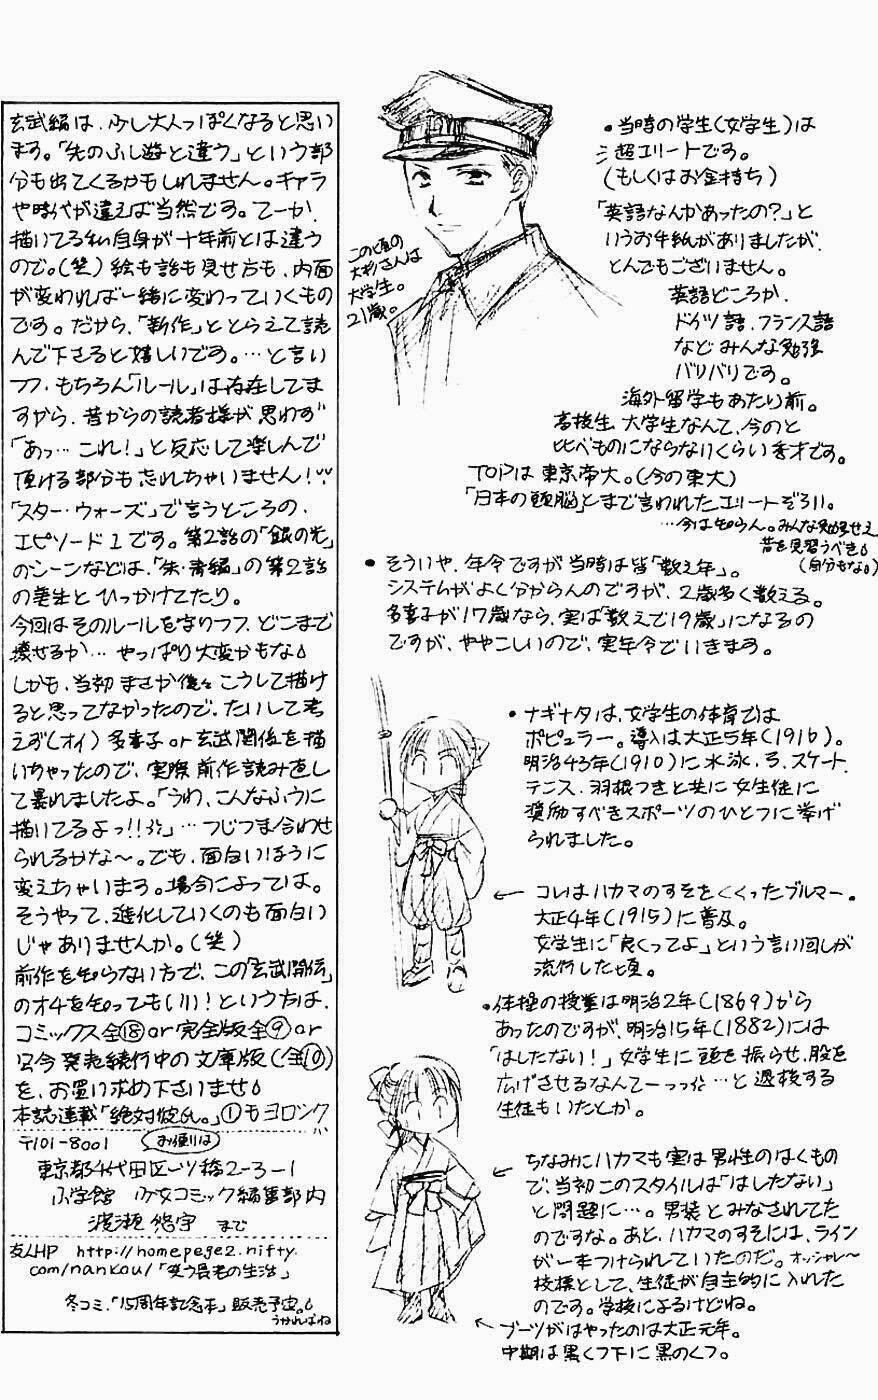 玄武編は、少し大人っぽくなると思い
ます。「先のふし遊と違う」という部
分も出てくるかもしれません。キャラ
や時代が違えば当然です。てーか、
描いてる私自身が十年前とは違う
ので。(笑)絵も話も見せ方も、内面
が変われば一緒に変わっていくもの
です。だから、「新作」ととらえて読
んで下さると嬉しいです。…と言い
つつ、もちろん「ルール」は存在してま
すから、昔からの読者様が思わず
「あっ…これ!」と反応して楽しんで
頂ける部分も忘れちゃいません!
「スター・ウォーズ」で言うところの、
エピソード1です。第2話の「銀の光」
のシーンなどは、「朱・青編」の第2話
の美朱とひっかけてたり。
今回はそのルールを守りつつ、どこまで
壊せるか…やっぱり大変かもな
しかも、当初まさか後々こうして描け
ると思ってなかったので、たいして考
えず(オイ)多喜子or玄武関係を描
いちゃったので、実際前作読み直し
て暴れましたよ。「うわ、こんなふうに
描いてるよっ!!」…つじつま合わせ
られるかな〜。でも、面白いほうに
変えちゃいます。場合によっては。
そうやって、進化していくのも面白い
じゃありませんか。(笑)
前作を知らない方で、この「玄武開伝」
のオチを知っても(いい)!という方は、
コミックス全⑱or完全版全⑨or
只今発売続行中の文庫版(全⑩)
を、お買い求め下さいませ
本誌連載「絶対彼氏。」①もヨロシク
〒101-8001 お便りは
東京都千代田区一ツ橋2-3-1
小学館 少女コミック編集部内
渡瀬悠宇 まで
友人HP http://homepege2.nifty.
com/nankou/「笑う長老の生活」
冬コミ、「15周年記念本」販売予定。
うかればね
この頃の
大杉さんは
大学生。
21歳。
・当時の学生(女学生)は
超エリートです。
(もしくはお金持ち)
「英語なんかあったの?」と
いうお手紙がありましたが、
とんでもございません。
英語どころか、
ドイツ語、フランス語
などみんな勉強
バリバリです。
海外留学もあたり前。
高校生、大学生なんて、今のと
比べものにならないくらい秀才です。
TOPは東京帝大。(今の東大)
「日本の頭脳」とまで言われたエリートぞろい。
…今は知らん。みんな勉強せえ
昔を見習うべき
(自分もな)
・そういや、年令ですが当時は皆「数え年」。
システムがよく分からんのですが、2歳多く数える。
多喜子が17歳なら、実は「数えで19歳」になるの
ですが、ややこしいので、実年令でいきます。
・ナギナタは、女学生の体育では
ポピュラー。導入は大正5年(1916)。
明治43年(1910)に水泳、弓、スケート、
テニス、羽根つきと共に女生徒に
奨励すべきスポーツのひとつに挙げ
られました。
← コレはハカマのすそをくくったブルマー。
大正4年(1915)に普及。
女学生に「良くってよ」という言い回しが
流行した頃。
・体操の授業は明治2年(1869)から
あったのですが、明治15年(1882)には
「はしたない!」女学生に頭を振らせ、股を
広げさせるなんてーっっ…と退校する
生徒もいたとか。
← ちなみにハカマも実は男性のはくもの
で、当初このスタイルは「はしたない」
と問題に…。男装とみなされてた
のですな。あと、ハカマのすそには、ライン
が一本つけられていたのだ。オッシャレ〜
校標として、生徒が自主的に入れた
のです。学校によるけどね。
← ブーツがはやったのは大正元年。
中期は黒くつ下に黒のくつ。